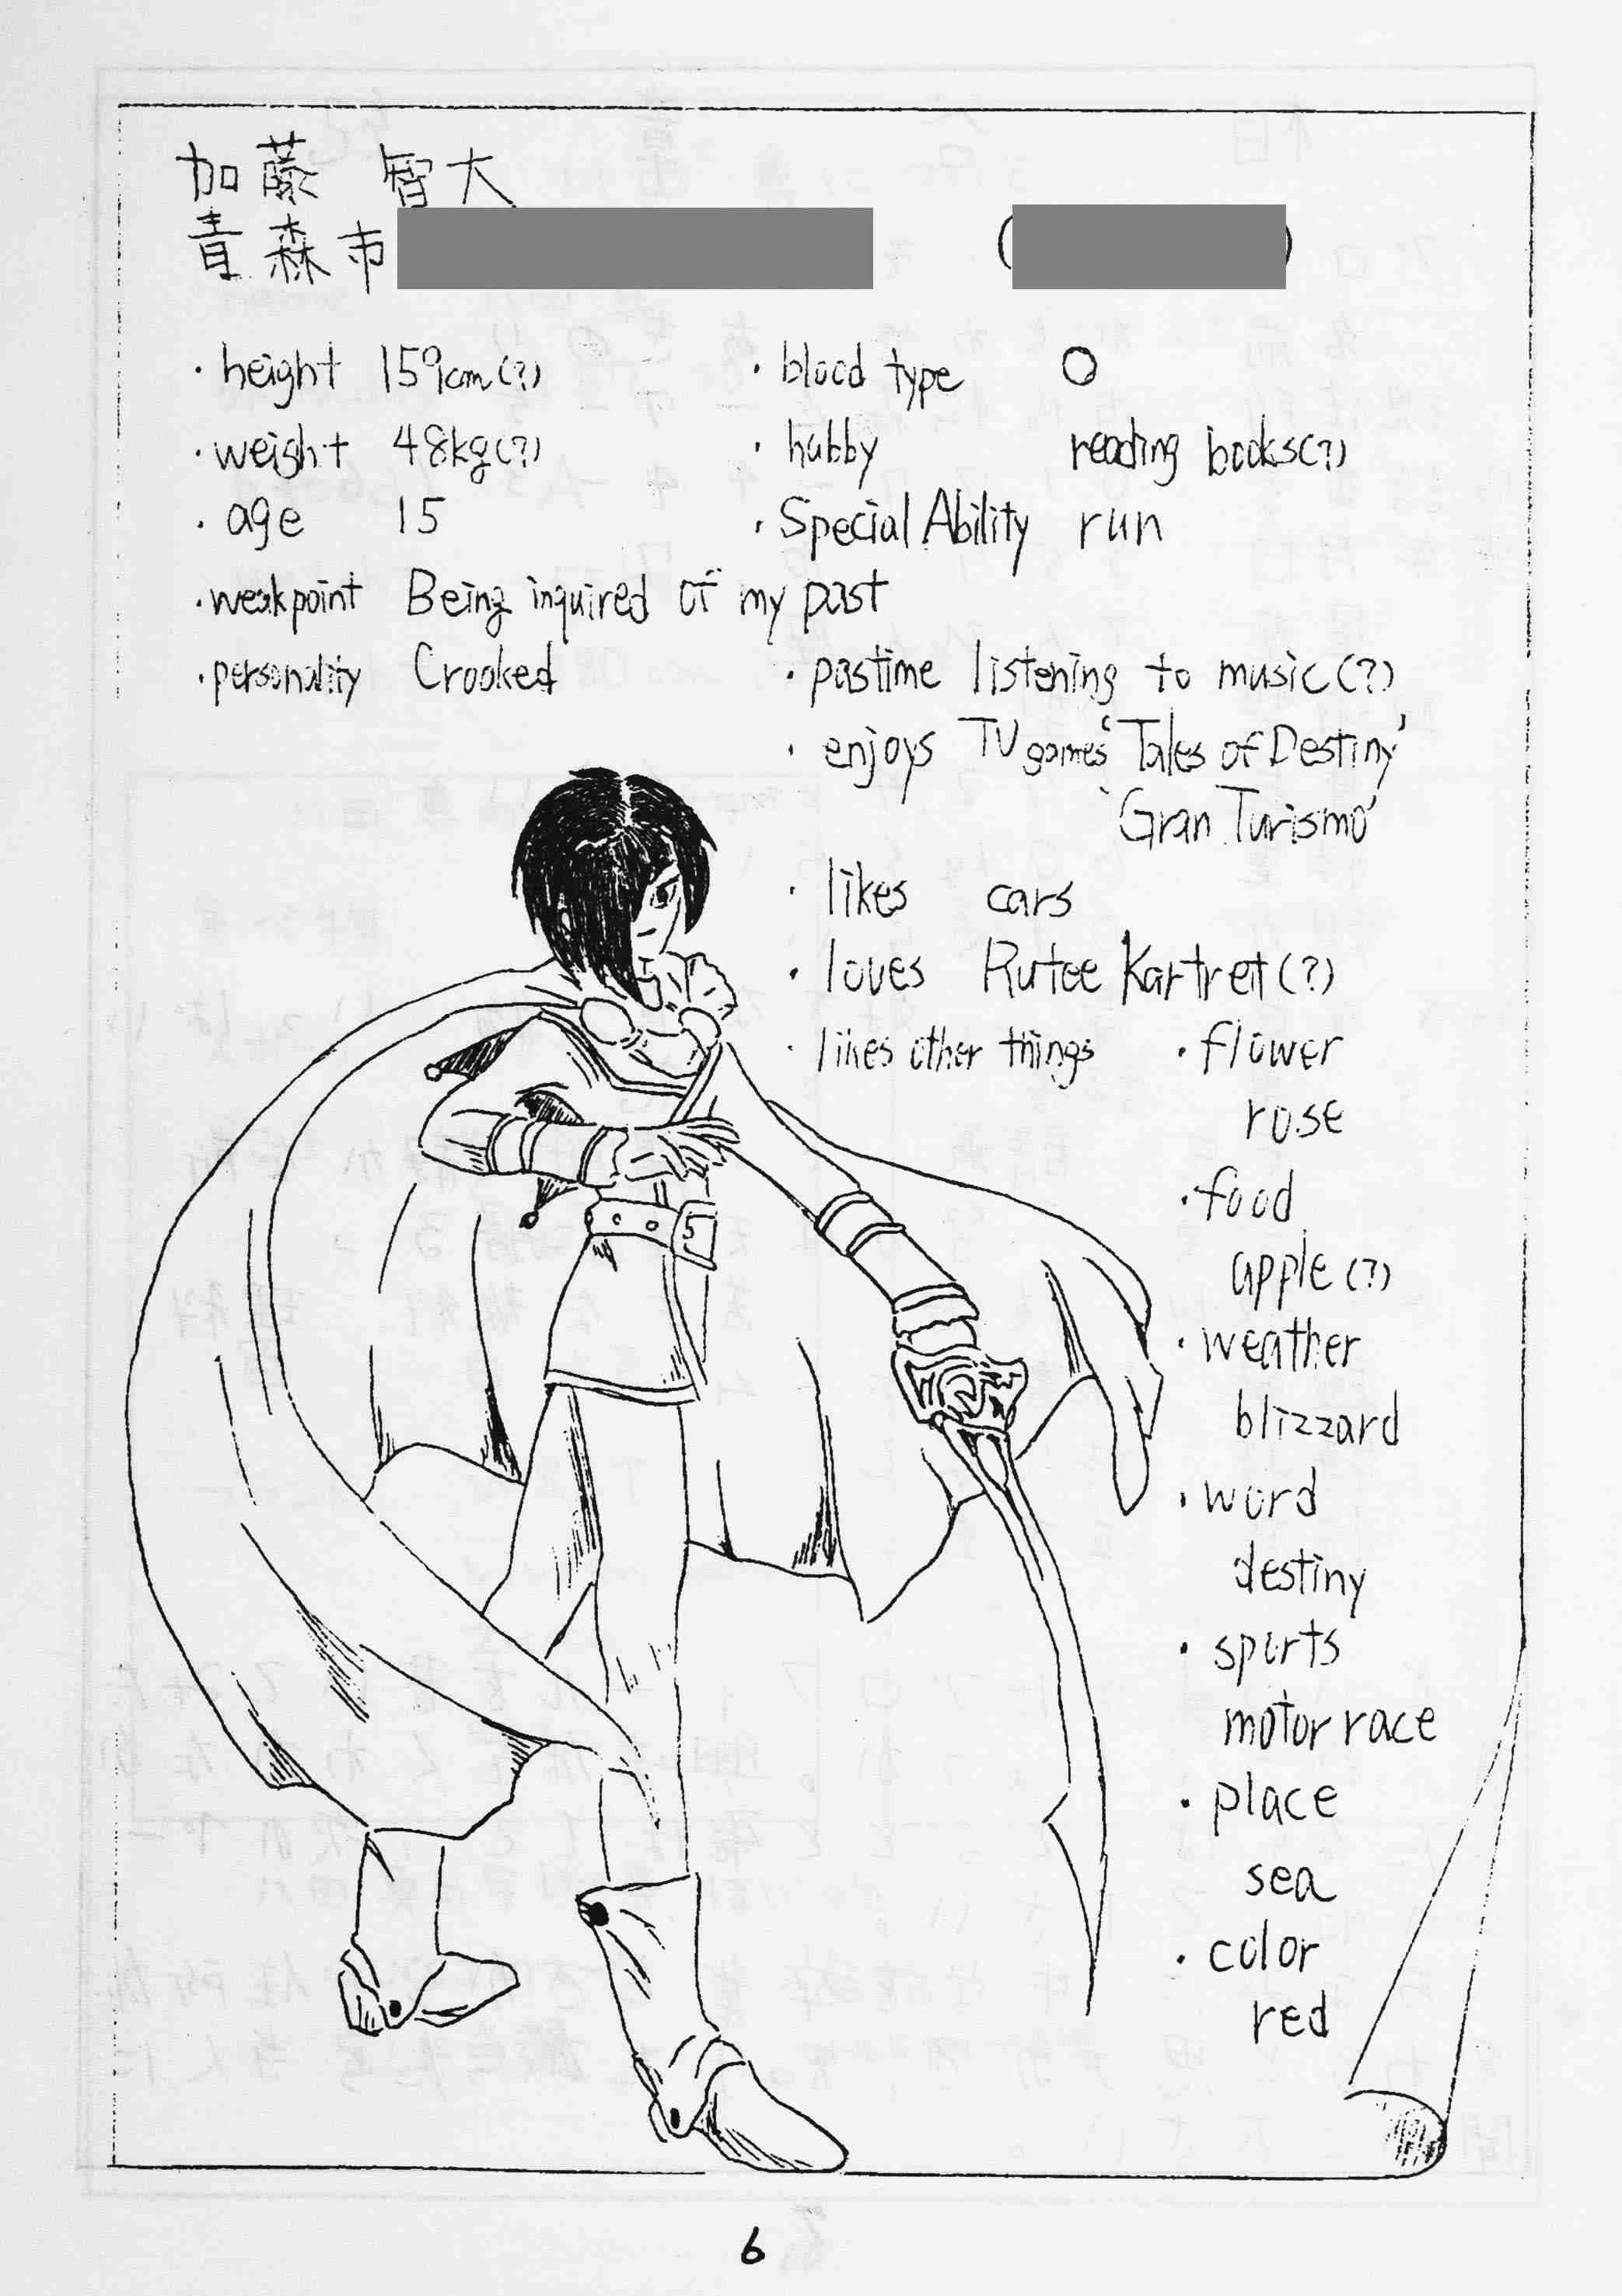 加藤 智大
青森市 ( )
・height 159cm(?)
・weight 48kg(?)
・age 15
・blood type O
・hubby reading books(?)
・Special Ability run
・weakpoint Being inquired of my past
・personality Crooked
・pastime listening to music(?)
・enjoys TV games 'Tales of Destiny'
'Gran Turismo'
・likes cars
・loves Rutee Kartret(?)
・likes other things ・flower
rose
・food
apple(?)
・weather
blizzard
・word
destiny
・sports
motor race
・place
sea
・color
red
6